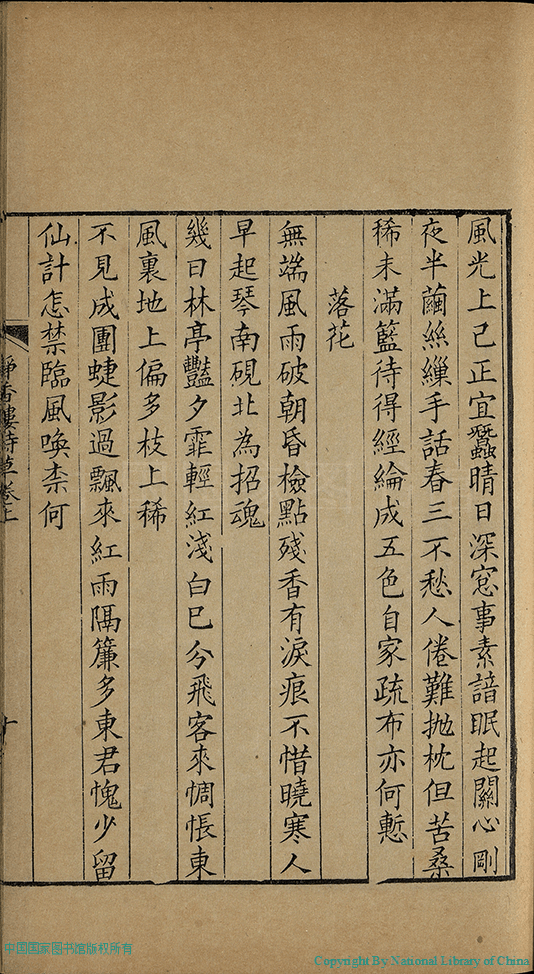 風光上巳正宜蠶晴日深窓事素諳眠起關心剛
夜半繭絲繅手話春三不愁人倦難拋枕但苦桑
稀未滿籃待得經綸成五色自家疏布亦何慙
落花
無端風雨破朝昏檢點殘香有淚痕不惜曉寒人
早起琴南硯北為招魂
幾日林亭豔夕霏輕紅淺白已分飛客來惆悵東
風裏地上偏多枝上稀
不見成團蜨影過飄來紅雨隔簾多東君愧少留
仙計怎禁臨風喚柰何
靜香樓詩草卷上
十
中国国家图书馆版权所有
Copyright By National Library of China